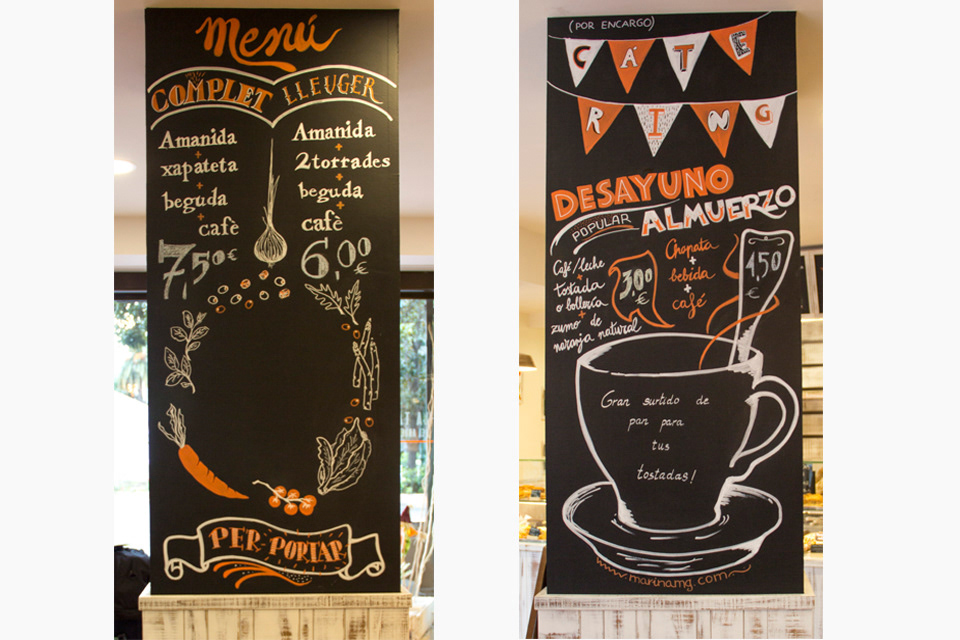 Menú
COMPLET
Amanida
+
xapateta
+
beguda
+
cafè
7,50€
LLEUGER
Amanida
+
2 torrades
+
beguda
+
cafè
6,00€
PER PORTAR
(POR ENCARGO)
CÁTE
RING
DESAYUNO
POPULAR
ALMUERZO
Café/leche
+
tostada
o bollería
+
zumo de
naranja natural
3,00€
Chapata
+
bebida
+
café
4,50€
Gran surtido de
pan para
tus
tostadas!
marinamg.com